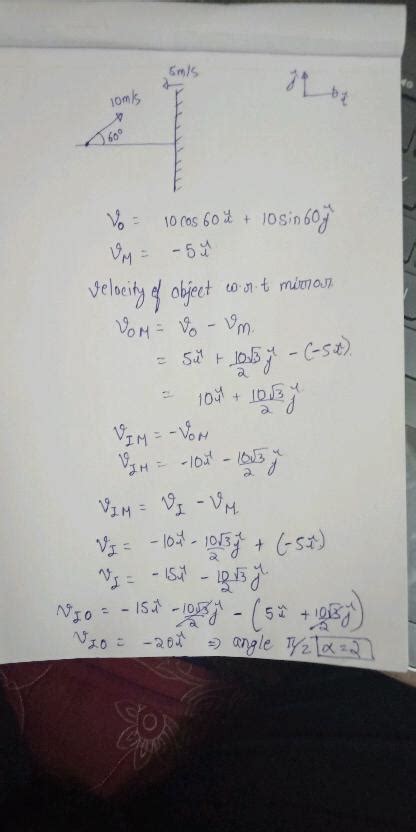 5m/s
10m/s
60°
ĵ
î
V₀ = 10cos60î + 10sin60ĵ
V_M = -5î
Velocity of object w.r.t mirror
V_OM = V₀ - V_M.
= 5î + 10√3/2 ĵ - (-5î)
= 10î + 10√3/2 ĵ
V_IM = -V_OM
V_IM = -10î - 10√3/2 ĵ
V_IM = V_I - V_M
V_I = -10î - 10√3/2 ĵ + (-5î)
V_I = -15î - 10√3/2 ĵ
V_IO = -15î - 10√3/2 ĵ - (5î + 10√3/2 ĵ)
V_IO = -20î ⇒ angle π/2 α=2